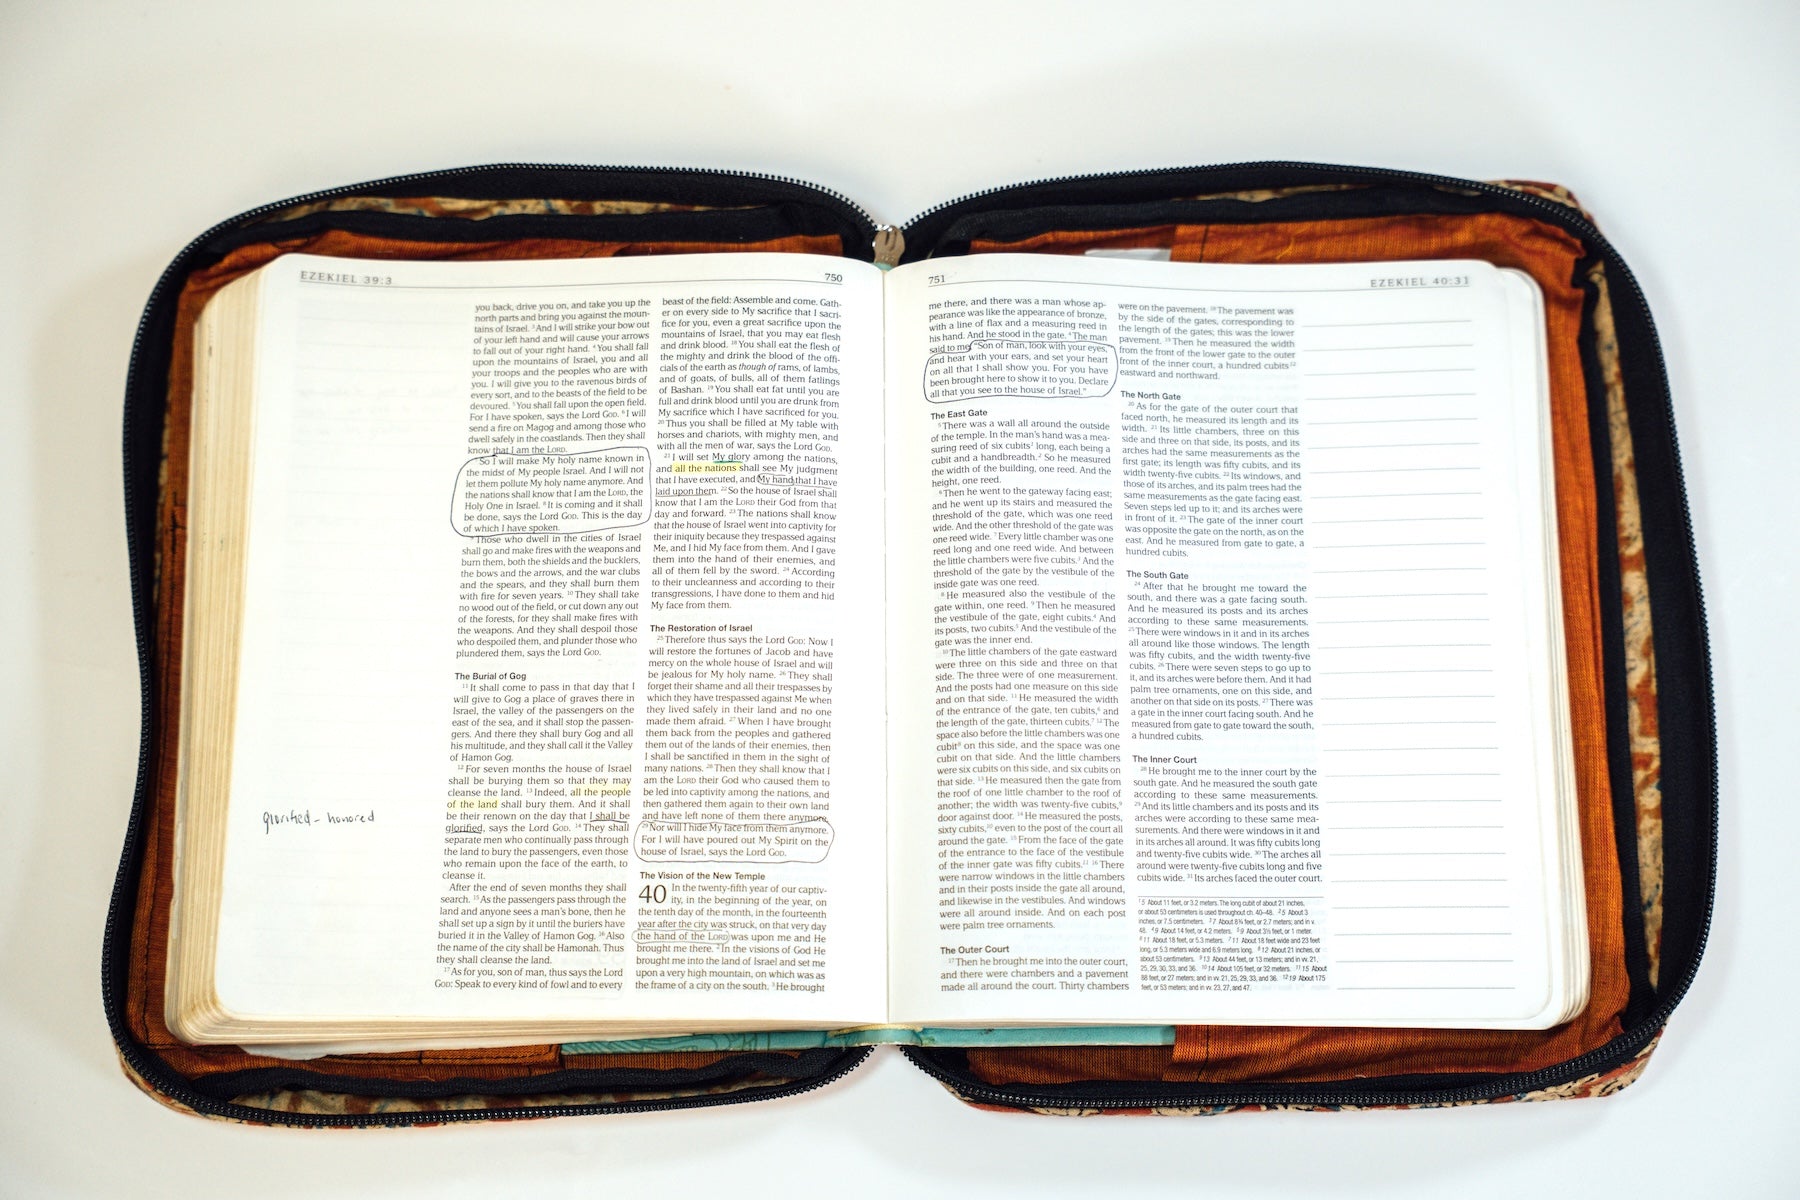 EZEKIEL 39:3
750
you back, drive you on, and take you up the
north parts and bring you against the moun-
tains of Israel. 3And I will strike your bow out
of your left hand and will cause your arrows
to fall out of your right hand. 4You shall fall
upon the mountains of Israel, you and all
your troops and the peoples who are with
you. I will give you to the ravenous birds of
every sort, and to the beasts of the field to be
devoured. 5You shall fall upon the open field,
For I have spoken, says the Lord GOD. 6I will
send a fire on Magog and among those who
dwell safely in the coastlands. Then they shall
know that I am the LORD.
7So I will make My holy name known in
the midst of My people Israel. And I will not
let them pollute My holy name anymore. And
the nations shall know that I am the LORD, the
Holy One in Israel. 8It is coming and it shall
be done, says the Lord GOD. This is the day
of which I have spoken.
9Those who dwell in the cities of Israel
shall go and make fires with the weapons and
burn them, both the shields and the bucklers,
the bows and the arrows, and the war clubs
and the spears, and they shall burn them
with fire for seven years. 10They shall take
no wood out of the field, or cut down any out
of the forests, for they shall make fires with
the weapons. And they shall despoil those
who despoiled them, and plunder those who
plundered them, says the Lord GOD.
The Burial of Gog
11It shall come to pass in that day that I
will give to Gog a place of graves there in
Israel, the valley of the passengers on the
east of the sea, and it shall stop the passen-
gers. And there they shall bury Gog and all
his multitude, and they shall call it the Valley
of Hamon Gog.
12For seven months the house of Israel
shall be burying them so that they may
cleanse the land. 13Indeed, all the people
of the land shall bury them. And it shall
be their renown on the day that I shall be
glorified, says the Lord GOD. 14They shall
separate men who continually pass through
the land to bury the passengers, even those
who remain upon the face of the earth, to
cleanse it.
After the end of seven months they shall
search. 15As the passengers pass through the
land and anyone sees a man's bone, then he
shall set up a sign by it until the buriers have
buried it in the Valley of Hamon Gog. 16Also
the name of the city shall be Hamonah. Thus
they shall cleanse the land.
17As for you, son of man, thus says the Lord
GOD: Speak to every kind of fowl and to every
glorified - honored
beast of the field: Assemble and come. Gath-
er on every side to My sacrifice that I sacri-
fice for you, even a great sacrifice upon the
mountains of Israel, that you may eat flesh
and drink blood. 18You shall eat the flesh of
the mighty and drink the blood of the offi-
cials of the earth as though of rams, of lambs,
and of goats, of bulls, all of them fatlings
of Bashan. 19You shall eat fat until you are
full and drink blood until you are drunk from
My sacrifice which I have sacrificed for you.
20Thus you shall be filled at My table with
horses and chariots, with mighty men, and
with all the men of war, says the Lord GOD.
21I will set My glory among the nations,
and all the nations shall see My judgment
that I have executed, and My hand that I have
laid upon them. 22So the house of Israel shall
know that I am the LORD their God from that
day and forward. 23The nations shall know
that the house of Israel went into captivity for
their iniquity because they trespassed against
Me, and I hid My face from them. And I gave
them into the hand of their enemies, and
all of them fell by the sword. 24According
to their uncleanness and according to their
transgressions, I have done to them and hid
My face from them.
The Restoration of Israel
25Therefore thus says the Lord GOD: Now I
will restore the fortunes of Jacob and have
mercy on the whole house of Israel and will
be jealous for My holy name. 26They shall
forget their shame and all their trespasses by
which they have trespassed against Me when
they lived safely in their land and no one
made them afraid. 27When I have brought
them back from the peoples and gathered
them out of the lands of their enemies, then
I shall be sanctified in them in the sight of
many nations. 28Then they shall know that I
am the LORD their God who caused them to
be led into captivity among the nations, and
then gathered them again to their own land
and have left none of them there anymore.
29Nor will I hide My face from them anymore.
For I will have poured out My Spirit on the
house of Israel, says the Lord GOD.
The Vision of the New Temple
40 In the twenty-fifth year of our captiv-
ity, in the beginning of the year, on
the tenth day of the month, in the fourteenth
year after the city was struck, on that very day
the hand of the LORD was upon me and He
brought me there. 2In the visions of God He
brought me into the land of Israel and set me
upon a very high mountain, on which was as
the frame of a city on the south. 3He brought
751
EZEKIEL 40:31
me there, and there was a man whose ap-
pearance was like the appearance of bronze,
with a line of flax and a measuring reed in
his hand. And he stood in the gate. 4The man
said to me, "Son of man, look with your eyes,
and hear with your ears, and set your heart
on all that I shall show you. For you have
been brought here to show it to you. Declare
all that you see to the house of Israel."
The East Gate
5There was a wall all around the outside
of the temple. In the man's hand was a mea-
suring reed of six cubits1 long, each being a
cubit and a handbreadth.2 So he measured
the width of the building, one reed. And the
height, one reed.
6Then he went to the gateway facing east;
and he went up its stairs and measured the
threshold of the gate, which was one reed
wide. And the other threshold of the gate was
one reed wide. 7Every little chamber was one
reed long and one reed wide. And between
the little chambers were five cubits.3 And the
threshold of the gate by the vestibule of the
inside gate was one reed.
8He measured also the vestibule of the
gate within, one reed. 9Then he measured
the vestibule of the gate, eight cubits.4 And
its posts, two cubits.5 And the vestibule of the
gate was the inner end.
10The little chambers of the gate eastward
were three on this side and three on that
side. The three were of one measurement.
And the posts had one measure on this side
and on that side. 11He measured the width
of the entrance of the gate, ten cubits,6 and
the length of the gate, thirteen cubits.7 12The
space also before the little chambers was one
cubit8 on this side, and the space was one
cubit on that side. And the little chambers
were six cubits on this side, and six cubits on
that side. 13He measured then the gate from
the roof of one little chamber to the roof of
another; the width was twenty-five cubits,9
door against door. 14He measured the posts,
sixty cubits,10 even to the post of the court all
around the gate. 15From the face of the gate
of the entrance to the face of the vestibule
of the inner gate was fifty cubits.11 16There
were narrow windows in the little chambers
and in their posts inside the gate all around,
and likewise in the vestibules. And windows
were all around inside. And on each post
were palm tree ornaments.
The Outer Court
17Then he brought me into the outer court,
and there were chambers and a pavement
made all around the court. Thirty chambers
were on the pavement. 18The pavement was
by the side of the gates, corresponding to
the length of the gates; this was the lower
pavement. 19Then he measured the width
from the front of the lower gate to the outer
front of the inner court, a hundred cubits12
eastward and northward.
The North Gate
20As for the gate of the outer court that
faced north, he measured its length and its
width. 21Its little chambers, three on this
side and three on that side, its posts, and its
arches had the same measurements as the
first gate; its length was fifty cubits, and its
width twenty-five cubits. 22Its windows, and
those of its arches, and its palm trees had the
same measurements as the gate facing east.
Seven steps led up to it; and its arches were
in front of it. 23The gate of the inner court
was opposite the gate on the north, as on the
east. And he measured from gate to gate, a
hundred cubits.
The South Gate
24After that he brought me toward the
south, and there was a gate facing south.
And he measured its posts and its arches
according to these same measurements.
25There were windows in it and in its arches
all around like those windows. The length
was fifty cubits, and the width twenty-five
cubits. 26There were seven steps to go up to
it, and its arches were before them. And it had
palm tree ornaments, one on this side, and
another on that side on its posts. 27There was
a gate in the inner court facing south. And he
measured from gate to gate toward the south,
a hundred cubits.
The Inner Court
28He brought me to the inner court by the
south gate. And he measured the south gate
according to these same measurements.
29And its little chambers and its posts and its
arches were according to these same mea-
surements. And there were windows in it and
in its arches all around. It was fifty cubits long
and twenty-five cubits wide. 30The arches all
around were twenty-five cubits long and five
cubits wide. 31Its arches faced the outer court.
15 About 11 feet, or 3.2 meters. The long cubit of about 21 inches,
or about 53 centimeters is used throughout ch. 40–48. 25 About 3
inches, or 7.5 centimeters. 37 About 8¾ feet, or 2.7 meters; and in v.
48. 49 About 14 feet, or 4.2 meters. 59 About 3½ feet, or 1 meter.
611 About 18 feet, or 5.3 meters. 711 About 18 feet wide and 23 feet
long, or 5.3 meters wide and 6.9 meters long. 812 About 21 inches, or
about 53 centimeters. 913 About 44 feet, or 13 meters; and in vv. 21,
25, 29, 30, 33, and 36. 1014 About 105 feet, or 32 meters. 1115 About
88 feet, or 27 meters; and in vv. 21, 25, 29, 33, and 36. 1219 About 175
feet, or 53 meters; and in vv. 23, 27, and 47.